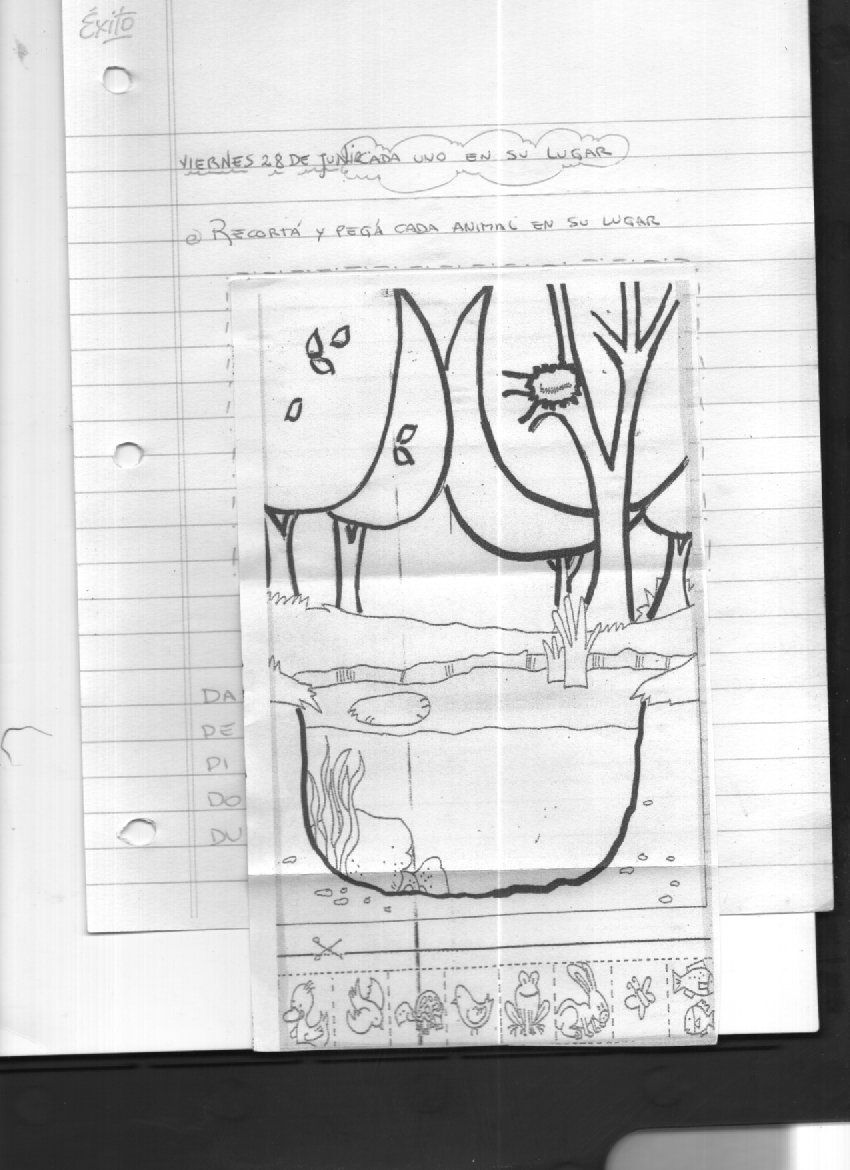 Éxito
VIERNES 28 DE JUNIO
CADA UNO EN SU LUGAR
RECORTÁ Y PEGÁ CADA ANIMAL EN SU LUGAR
DA
DE
DI
DO
DU